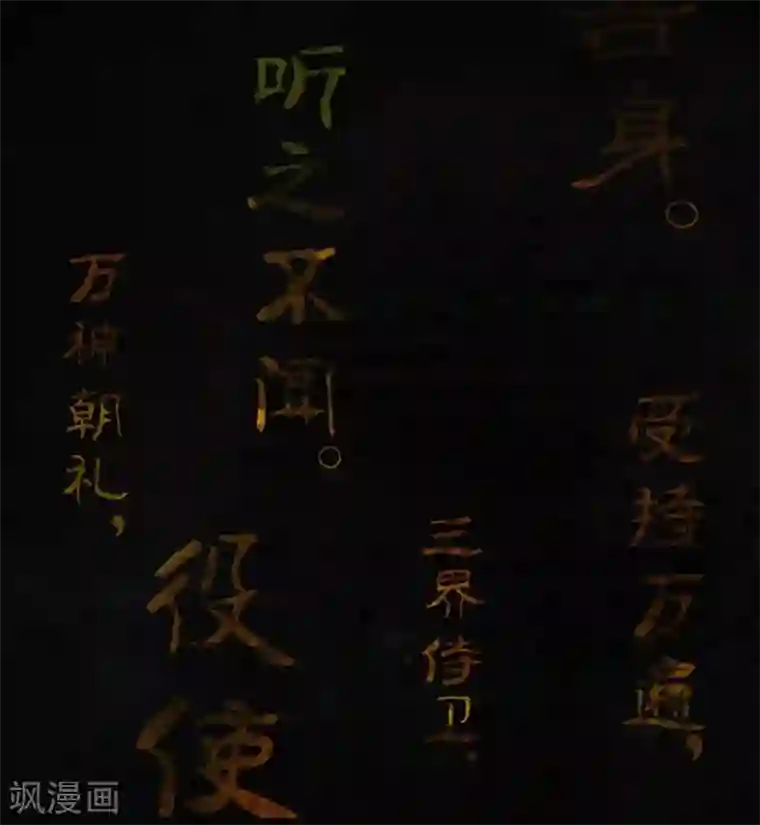 吾身。
受持万遍，
三界侍卫，
听之不闻。
役使
万神朝礼，
飒漫画